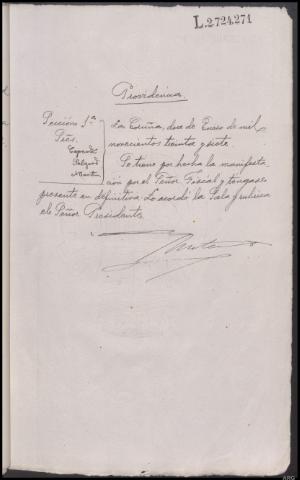 L.2724,271
Providencia
Sección 1ª
Sres.
La Coruña, doce de Enero de mil
novecientos treinta y siete.
Se tiene por hecha la manifesta-
ción por el Señor Fiscal y téngase
presente en definitiva. Lo acordó la Sala y rubrica
el Señor Presidente.
ARG